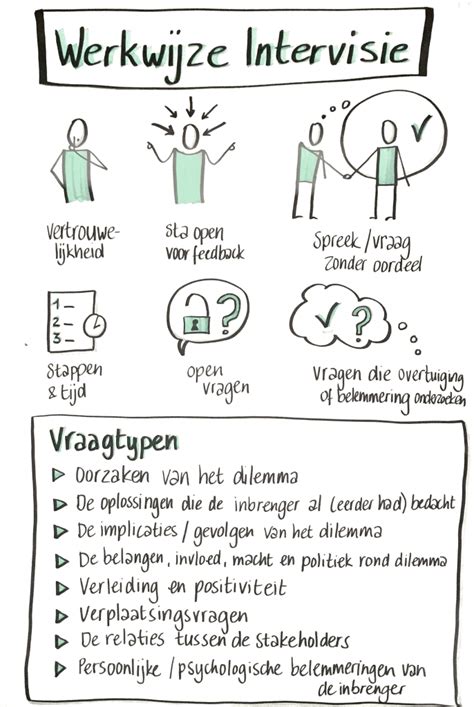 Werkwijze Intervisie
vertrouwe-
lijkheid
Sta open
voor feedback
Spreek/vraag
zonder oordeel
1-
2-
3-
?
?
Stappen
& tijd
open
vragen
Vragen die overtuiging
of belemmering onderzoeken
Vraagtypen
Oorzaken van het dilemma
De oplossingen die de inbrenger al (eerder had) bedacht
De implicaties / gevolgen van het dilemma
De belangen, invloed, macht en politiek rond dilemma
Verleiding en positiviteit
Verplaatsingsvragen
De relaties tussen de stakeholders
Persoonlijke / psychologische belemmeringen van
de inbrenger